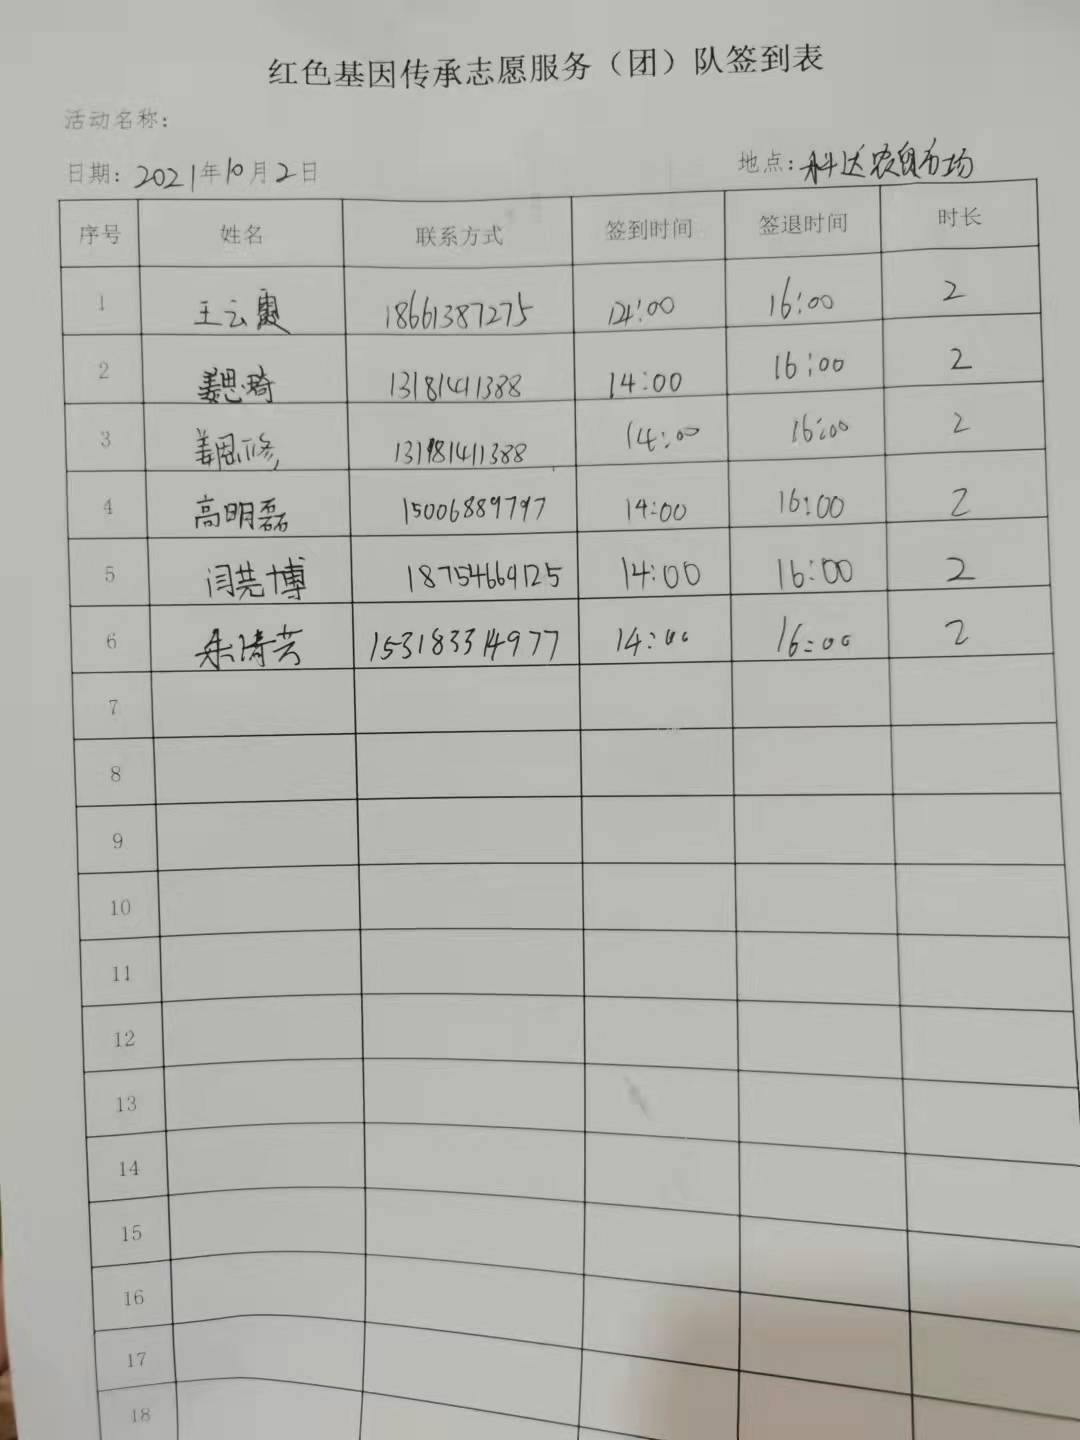 红色基因传承志愿服务（团）队签到表
活动名称：
日期：2021年10月2日 地点：科达农贸市场
序号 姓名 联系方式 签到时间 签退时间 时长
1 王云惠 18661387275 14:00 16:00 2
2 姜思琦 13181411388 14:00 16:00 2
3 姜恩修 13181411388 14:00 16:00 2
4 高明磊 15006889797 14:00 16:00 2
5 闫芫博 18754669125 14:00 16:00 2
6 朱涛芸 153183314977 14:00 16:00 2
7
8
9
10
11
12
13
14
15
16
17
18